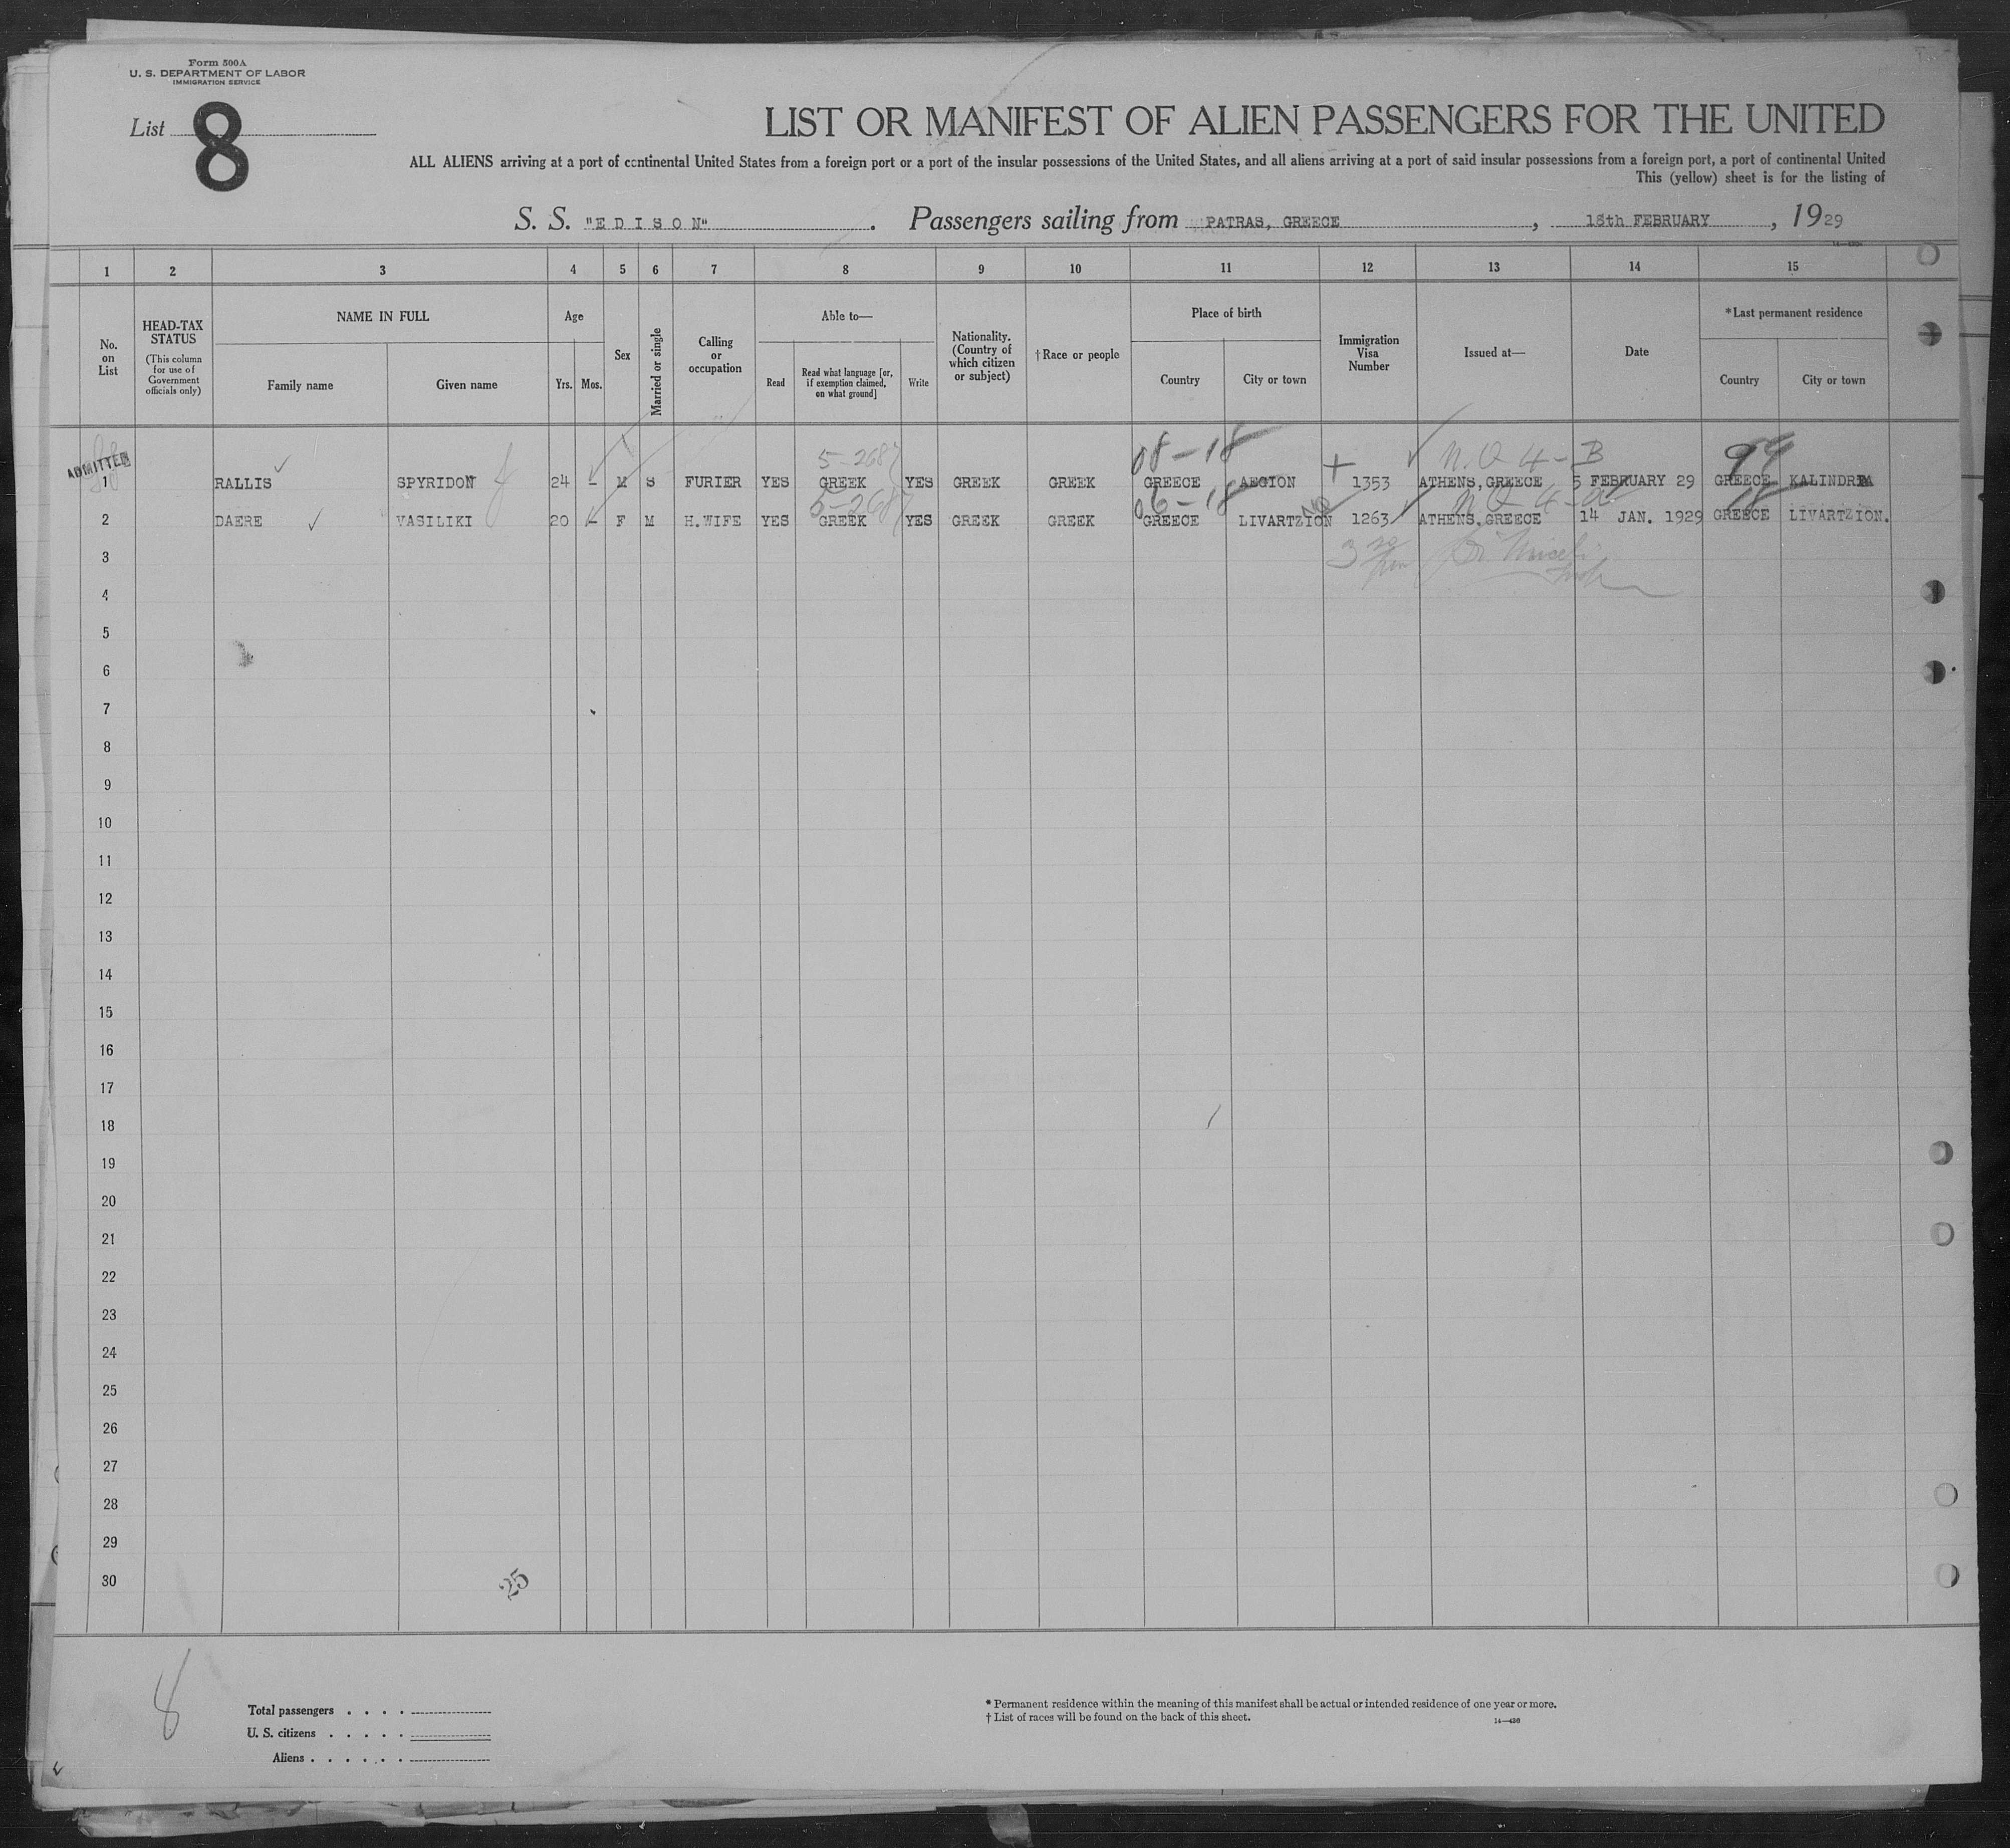 Form 500A
U. S. DEPARTMENT OF LABOR
IMMIGRATION SERVICE
List 8
LIST OR MANIFEST OF ALIEN PASSENGERS FOR THE UNITED
ALL ALIENS arriving at a port of continental United States from a foreign port or a port of the insular possessions of the United States, and all aliens arriving at a port of said insular possessions from a foreign port, a port of continental United
This (yellow) sheet is for the listing of
S. S. "EDISON" . Passengers sailing from PATRAS, GREECE , 18th FEBRUARY , 1929
1 2 3 4 5 6 7 8 9 10 11 12 13 14 15
No. on List
HEAD-TAX STATUS
(This column for use of Government officials only)
NAME IN FULL
Family name Given name
Age
Yrs. Mos.
Sex
Married or single
Calling or occupation
Able to—
Read
Read what language [or, if exemption claimed, on what ground]
Write
Nationality. (Country of which citizen or subject)
†Race or people
Place of birth
Country City or town
Immigration Visa Number
Issued at—
Date
*Last permanent residence
Country City or town
5-2687 08-18 N.Q 4-B 99
ADMITTED
1 RALLIS SPYRIDON 24 - M S FURIER YES GREEK YES GREEK GREEK GREECE AEGION 1353 ATHENS, GREECE 5 FEBRUARY 29 GREECE
5-2687 06-18
2 DAERE VASILIKI 20 - F M H.WIFE YES GREEK YES GREEK GREEK GREECE LIVARTZION 1263 ATHENS, GREECE 14 JAN. 1929 GREECE LIVARTZION.
3
4
5
6
7
8
9
10
11
12
13
14
15
16
17
18
19
20
21
22
23
24
25
26
27
28
29
30
25
8
Total passengers . . . .
U. S. citizens . . . . .
Aliens . . . . . .
* Permanent residence within the meaning of this manifest shall be actual or intended residence of one year or more.
† List of races will be found on the back of this sheet.
14—430